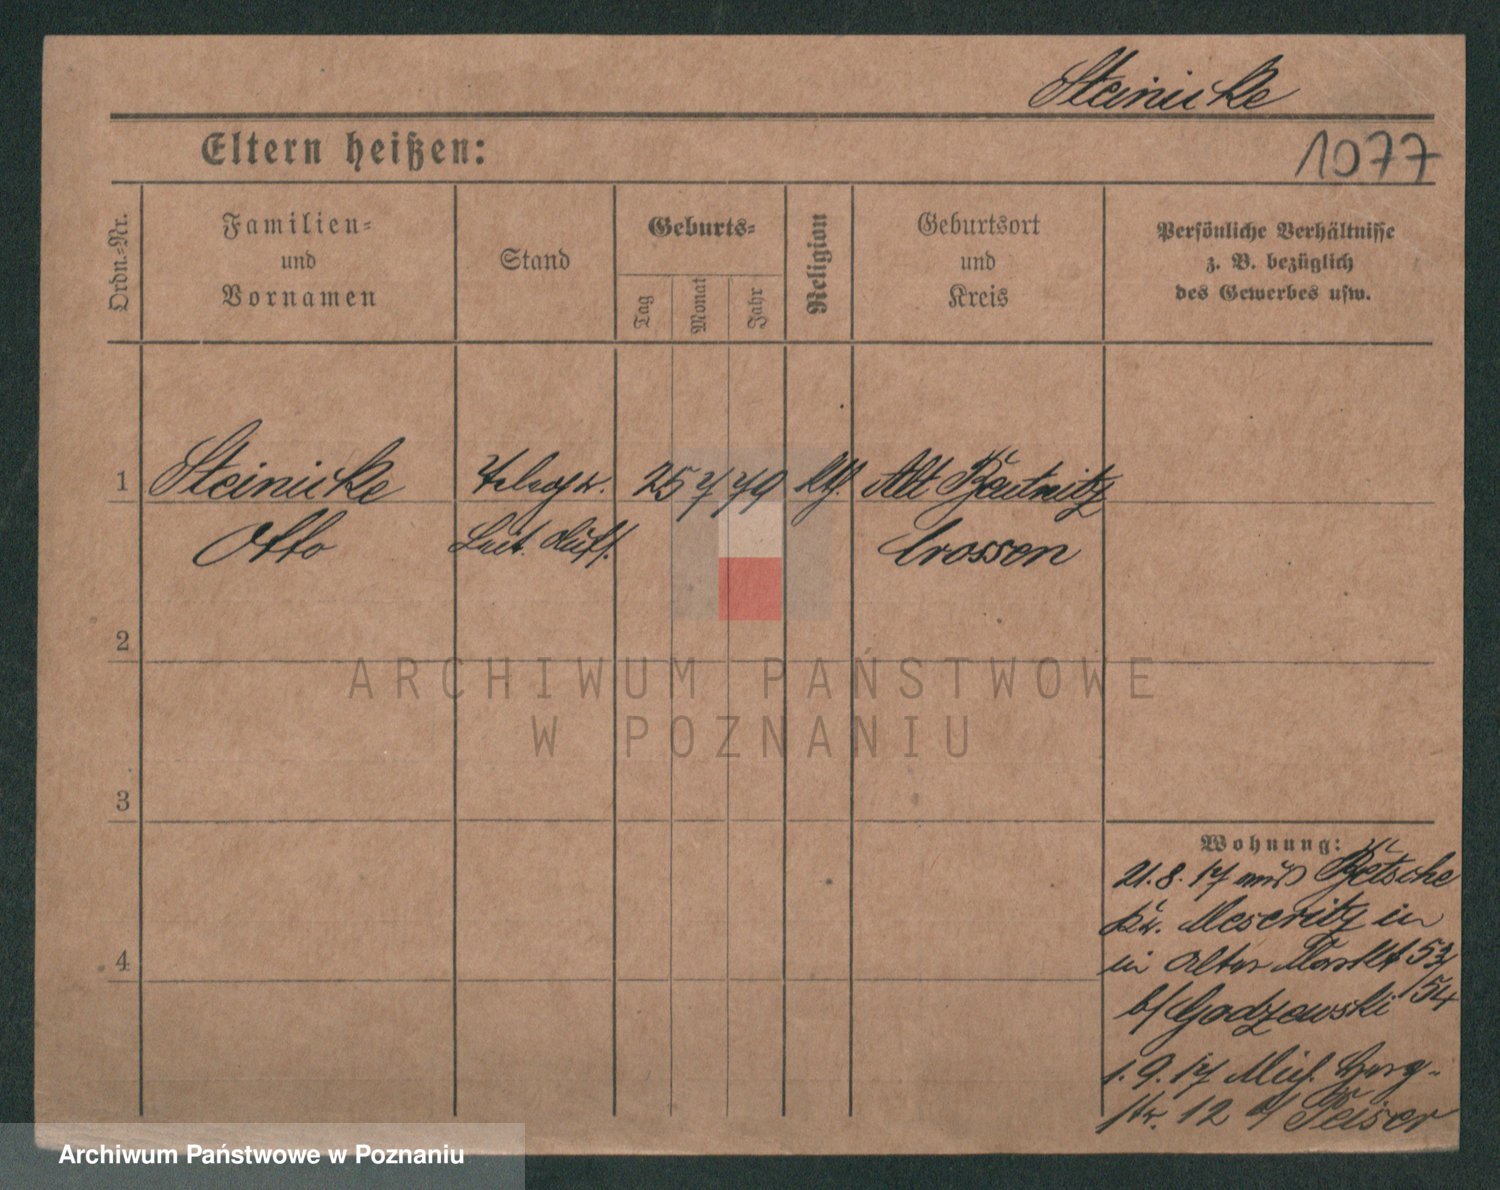 Steinicke
Eltern heißen:
1077
Ordn.-Nr.
Familien-
und
Vornamen
Stand
Geburts-
Tag
Monat
Jahr
Religion
Geburtsort
und
Kreis
Persönliche Verhältnisse
z. B. bezüglich
des Gewerbes usw.
1
Steinicke
25 7 79
Alt Beutnitz
Otto
Crossen
2
3
4
Wohnung:
21.8.17 aus Betsche
Kr. Meseritz in
in Alter Markt 53
/54
b/ Godzewski
1.9.17
str. 12 b/ Peiser
ARCHIWUM PAŃSTWOWE
W POZNANIU
Archiwum Państwowe w Poznaniu